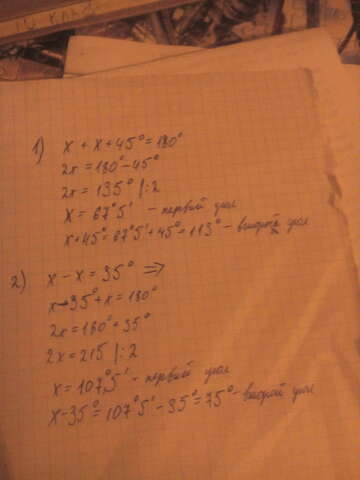 1) x + x + 45° = 180°
2x = 180° - 45°
2x = 135° |:2
x = 67°5' - первый угол
x+45° = 67°5' + 45° = 113° - второй угол
2) x - x = 35° ⇒
x - 35° + x = 180°
2x = 180° + 35°
2x = 215 |:2
x = 107°5' - первый угол
x - 35° = 107°5' - 35° = 75° - второй угол